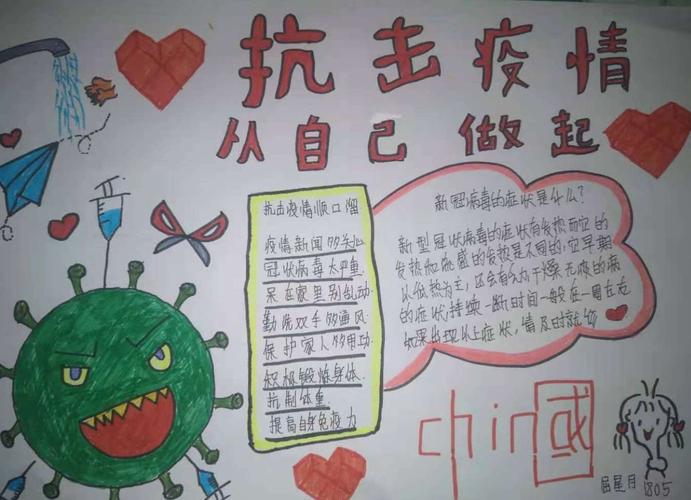 抗击疫情
从自己 做起
抗击疫情顺口溜
疫情新闻多关心
冠状病毒太严重
呆在家里别乱动
勤洗双手多通风
保护家人多用功
积极锻炼身体
抗制体重
提高自身免疫力
新冠病毒的症状是什么?
新型冠状病毒的症状有发热而它的
发热和感的发热是不同的,它早期
以低热为主,还会有么力干燥无痰的病
的症状,持续一断时间一般在一周左右
如果出现以上症状,请及时就
chin国
吕星月 1805